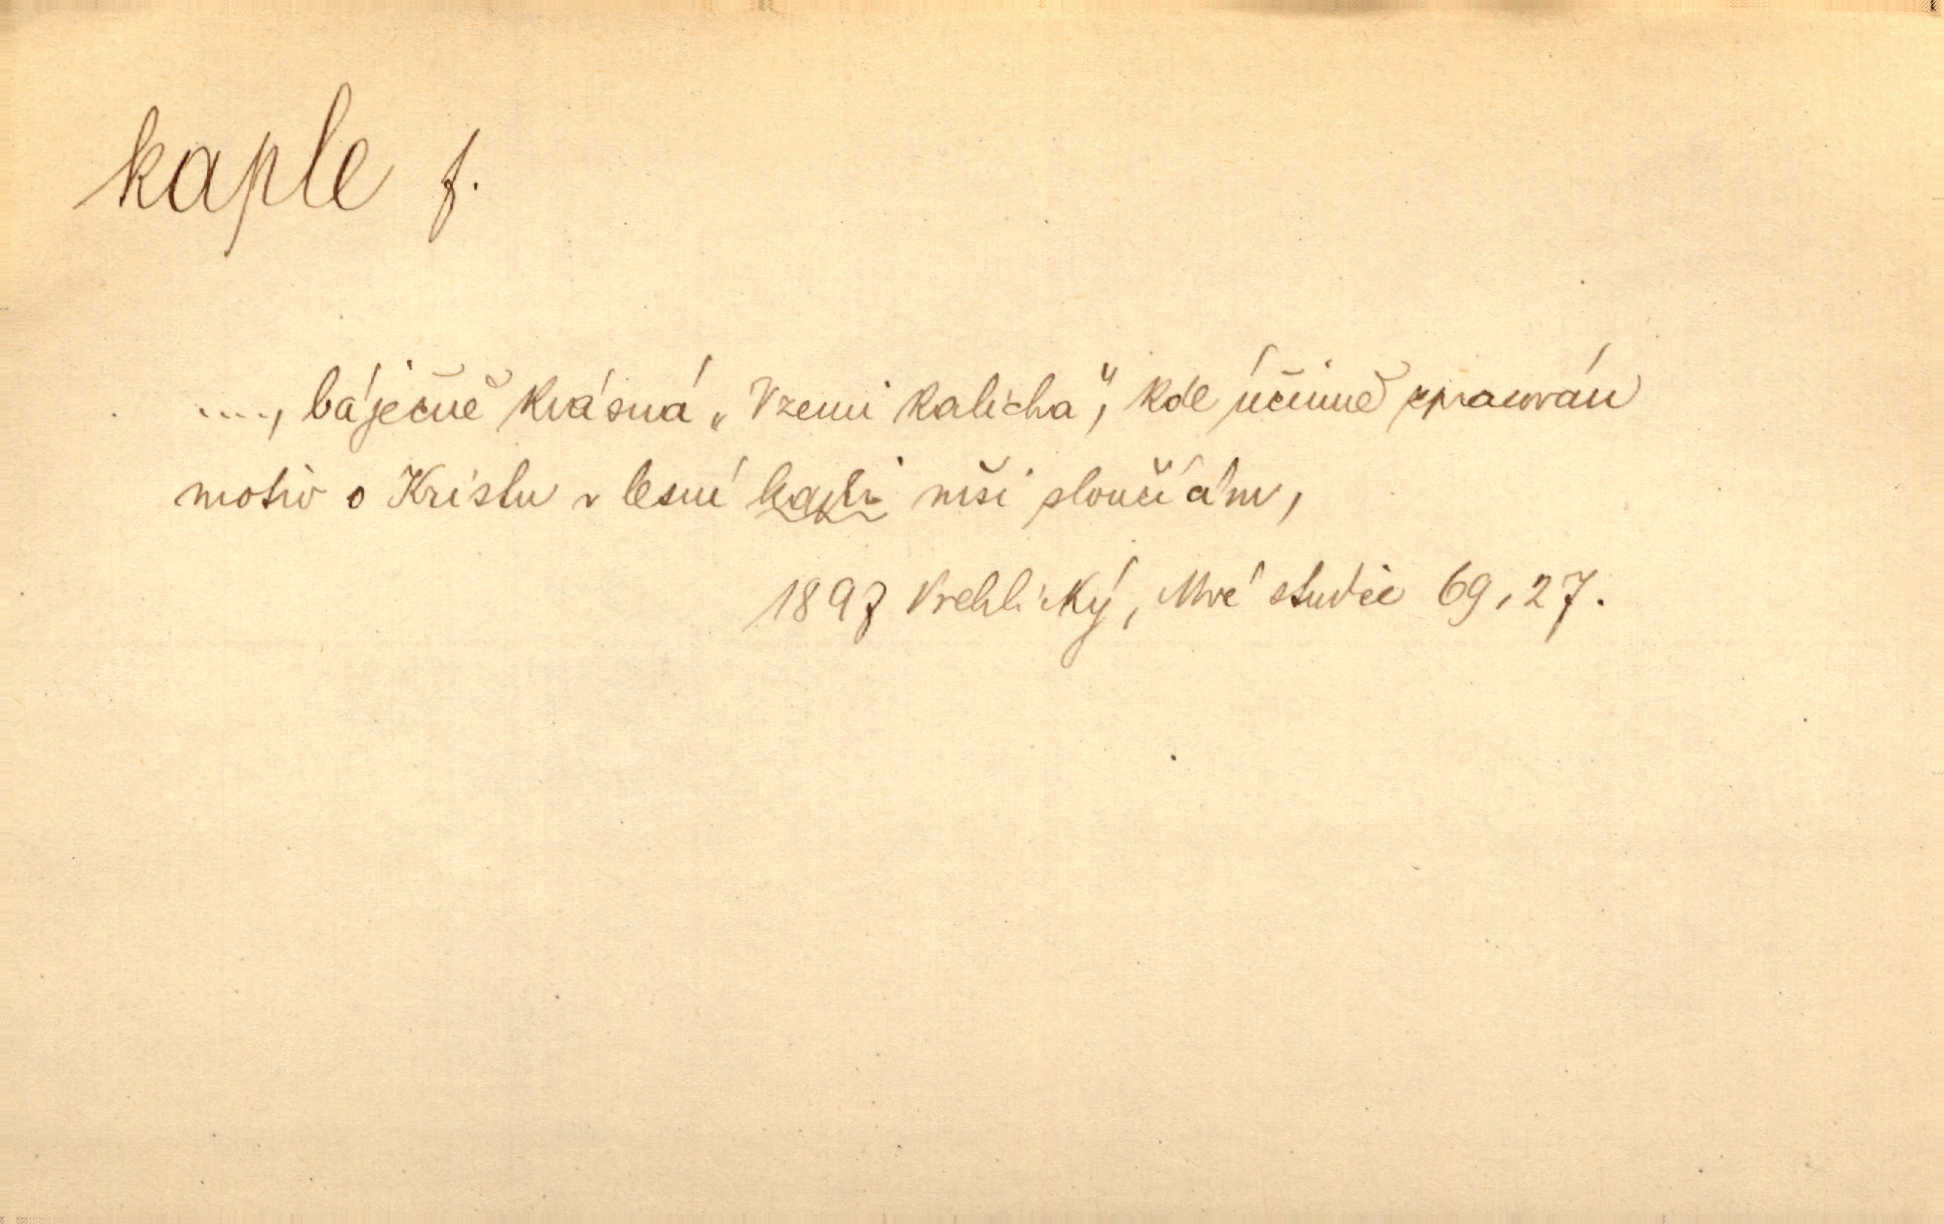 kaple f.
...., báječně krásná „Vzemi kalicha", kde účinně zpracován
motiv o Kristu v lesní kapli mši sloužícím,
1897 Vrchlický, Mvé studie 69, 27.